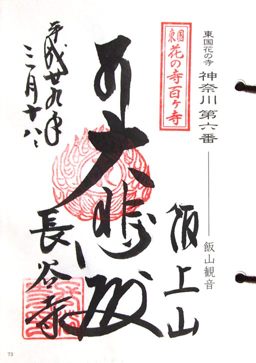 東国花の寺
神奈川 第六番
飯山観音
東国
花の寺百ヶ寺
飯上山
大悲殿
長谷寺
平成廿九年
三月十八
73